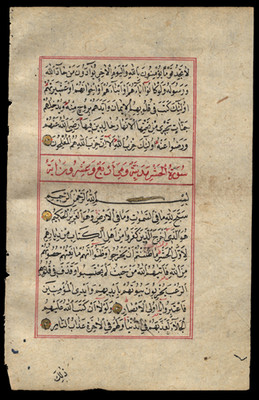 لا تجد قوما يؤمنون بالله واليوم الاخر يوادون من حاد الله
ورسوله ولو كانوا اباءهم او ابناءهم او اخوانهم او عشيرتهم
اولئك كتب في قلوبهم الايمان وايدهم بروح منه ويدخلهم
جنات تجري من تحتها الانهار خالدين فيها رضي الله عنهم
ورضوا عنه اولئك حزب الله الا ان حزب الله هم المفلحون
سورة الحشر مدنية وهي اربع وعشرون اية
بسم الله الرحمن الرحيم
سبح لله ما في السموات وما في الارض وهو العزيز الحكيم
هو الذي اخرج الذين كفروا من اهل الكتاب من ديارهم
لاول الحشر ما ظننتم ان يخرجوا وظنوا انهم مانعتهم حصونهم
من الله فاتيهم الله من حيث لم يحتسبوا وقذف في قلوبهم
الرعب يخربون بيوتهم بايديهم وايدي المؤمنين
فاعتبروا يا اولي الابصار ولولا ان كتب الله عليهم
الجلاء لعذبهم في الدنيا ولهم في الاخرة عذاب النار
ذلك